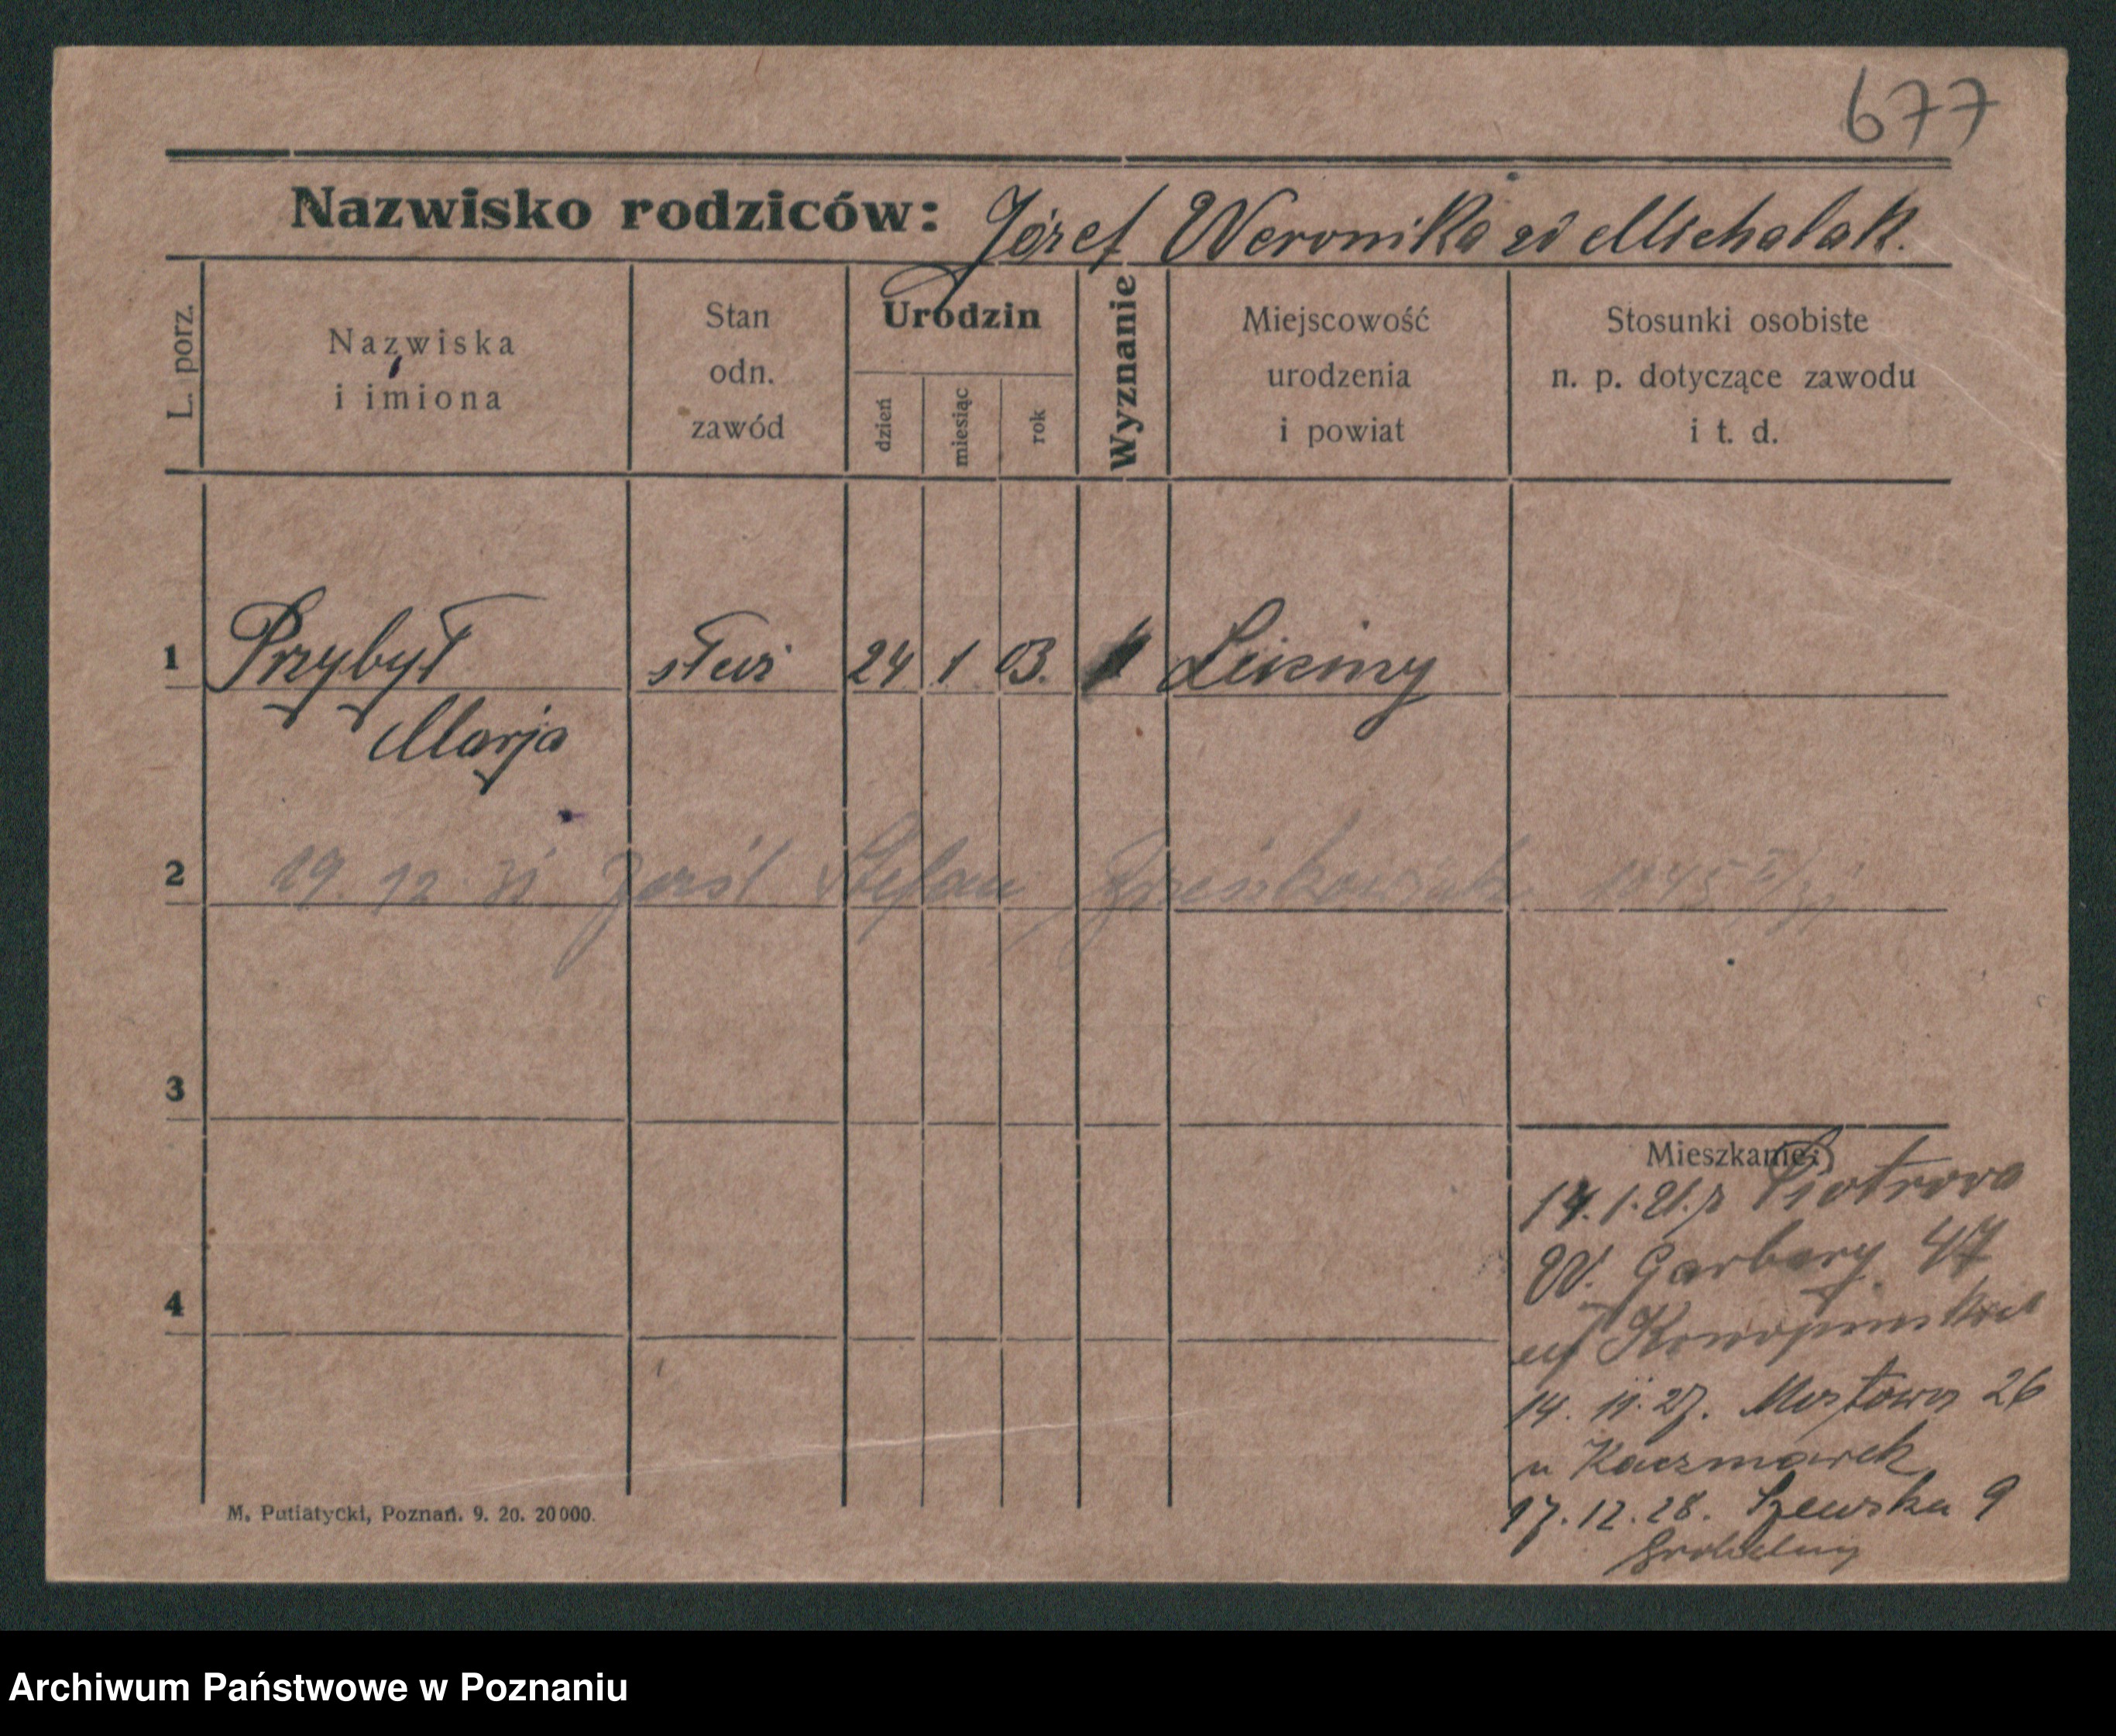 677
Nazwisko rodziców: Józef Weronika zd Michalak.
L. porz.
Nazwiska
i imiona
Stan
odn.
zawód
Urodzin
dzień
miesiąc
rok
Wyznanie
Miejscowość
urodzenia
i powiat
Stosunki osobiste
n. p. dotyczące zawodu
i t. d.
1 Przybył 24 1 03. k
Marja
2 19. 12 31 Stefan
3
4
Mieszkanie:
14. 1. 21. z Piotrowa
W. Garbary 47
14. 11. 27. Mostowa 26
u Kaczmarek
17. 12. 28. Szewska 9
M. Putiatycki, Poznań. 9. 20. 20000.
Archiwum Państwowe w Poznaniu